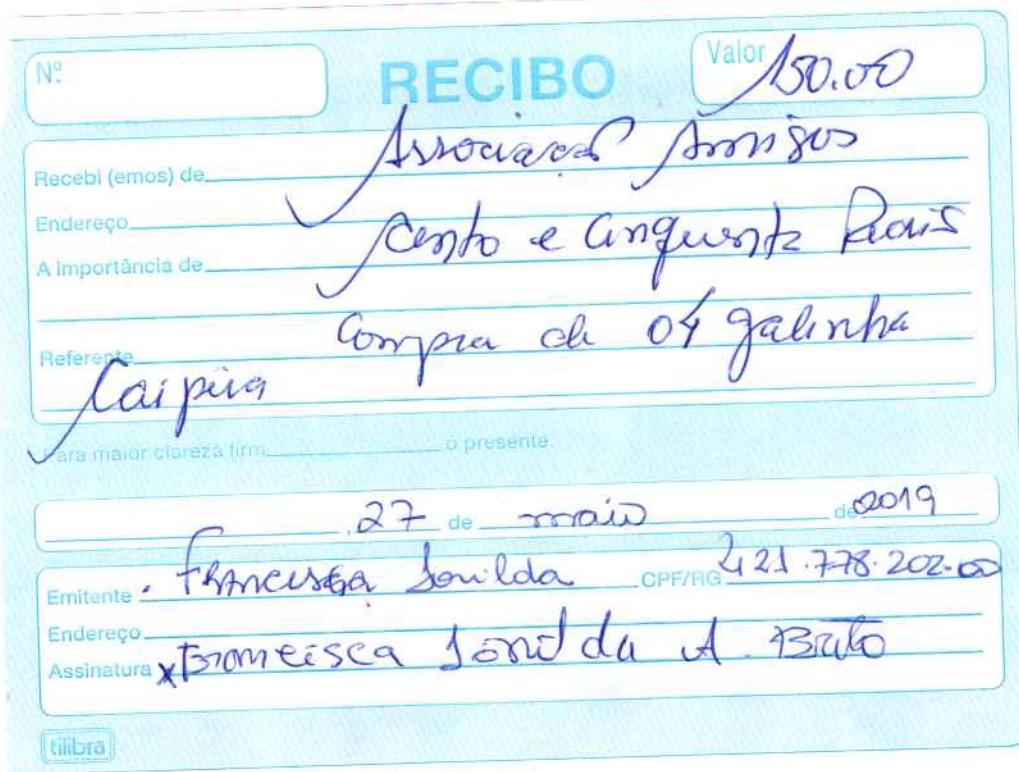 Nº
RECIBO
Valor 150.00
Recebi (emos) de Associaçaõ Amigos
Endereço
A importância de Cento e Cinquenta Reais
Referente Compra de 04 galinha
Caipira
Para maior clareza firm o presente.
, 27 de maio de 2019
Emitente Francisca CPF/RG 421.778.202-00
Endereço
Assinatura x Francisca A. Brito
tilibra